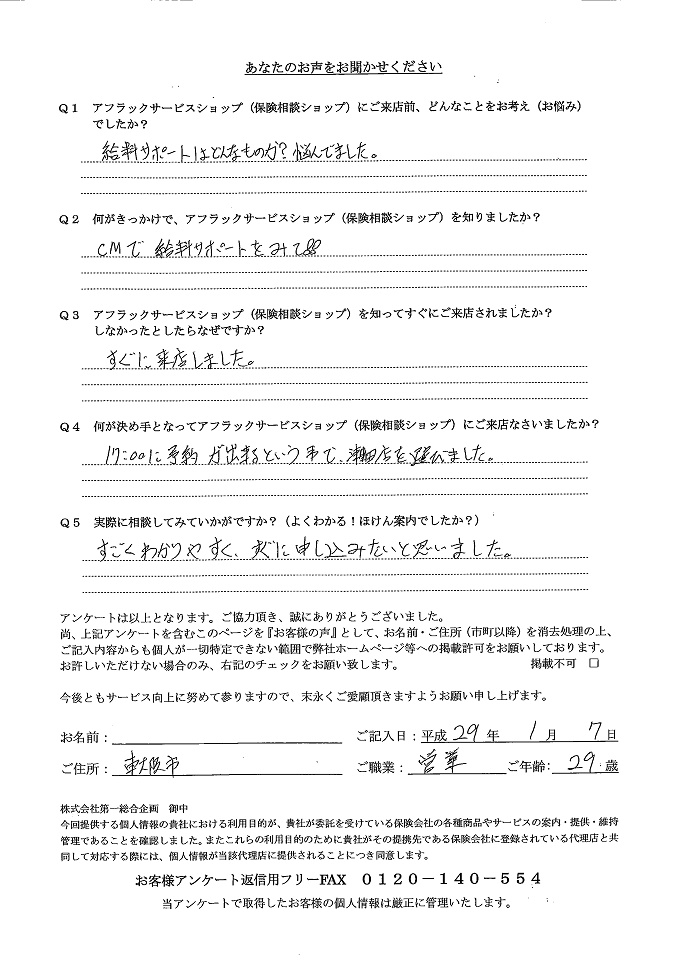 あなたのお声をお聞かせください
Q1 アフラックサービスショップ（保険相談ショップ）にご来店前、どんなことをお考え（お悩み）
でしたか？
給料サポートはどんなものか？悩んでました。
Q2 何がきっかけで、アフラックサービスショップ（保険相談ショップ）を知りましたか？
CMで給料サポートをみて
Q3 アフラックサービスショップ（保険相談ショップ）を知ってすぐにご来店されましたか？
しなかったとしたらなぜですか？
すぐに来店しました。
Q4 何が決め手となってアフラックサービスショップ（保険相談ショップ）にご来店なさいましたか？
17:00に予約が出来るという事で、店を選びました。
Q5 実際に相談してみていかがですか？（よくわかる！ほけん案内でしたか？）
すごくわかりやすく、すぐに申し込みたいと思いました。
アンケートは以上となります。ご協力頂き、誠にありがとうございました。
尚、上記アンケートを含むこのページを『お客様の声』として、お名前・ご住所（市町以降）を消去処理の上、
ご記入内容からも個人が一切特定できない範囲で弊社ホームページ等への掲載許可をお願いしております。
お許しいただけない場合のみ、右記のチェックをお願い致します。 掲載不可 □
今後ともサービス向上に努めて参りますので、末永くご愛顧頂きますようお願い申し上げます。
お名前： ご記入日：平成 29 年 1 月 7 日
ご住所： 東大阪市 ご職業： 営業 ご年齢： 29 歳
株式会社第一総合企画 御中
今回提供する個人情報の貴社における利用目的が、貴社が委託を受けている保険会社の各種商品やサービスの案内・提供・維持
管理であることを確認しました。またこれらの利用目的のために貴社がその提携先である保険会社に登録されている代理店と共
同して対応する際には、個人情報が当該代理店に提供されることにつき同意します。
お客様アンケート返信用フリーFAX 0120－140－554
当アンケートで取得したお客様の個人情報は厳正に管理いたします。